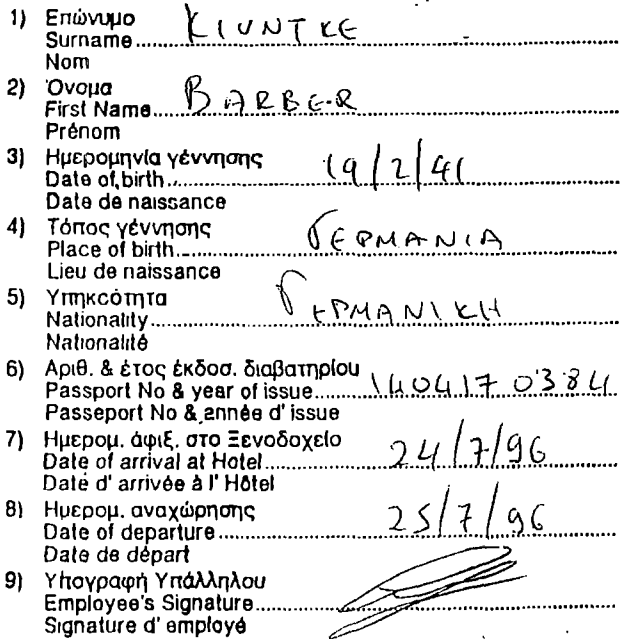 1) Επώνυμο
Surname.......... KIUNTKE
Nom
2) Όνομα
First Name.......... BARBER
Prénom
3) Ημερομηνία γέννησης
Date of birth.......... 19/2/41
Date de naissance
4) Τόπος γέννησης
Place of birth.......... ΓΕΡΜΑΝΙΑ
Lieu de naissance
5) Υπηκοότητα
Nationality.......... ΓΕΡΜΑΝΙΚΗ
Nationalité
6) Αριθ. & έτος έκδοσ. διαβατηρίου
Passport No & year of issue.......... 1404170384
Passeport No & année d' issue
7) Ημερομ. άφιξ. στο Ξενοδοχείο
Date of arrival at Hotel.......... 24/7/96
Daté d' arrivée à l' Hôtel
8) Ημερομ. αναχώρησης
Date of departure.......... 25/7/96
Date de départ
9) Υπογραφή Υπάλληλου
Employee's Signature..........
Signature d' employé